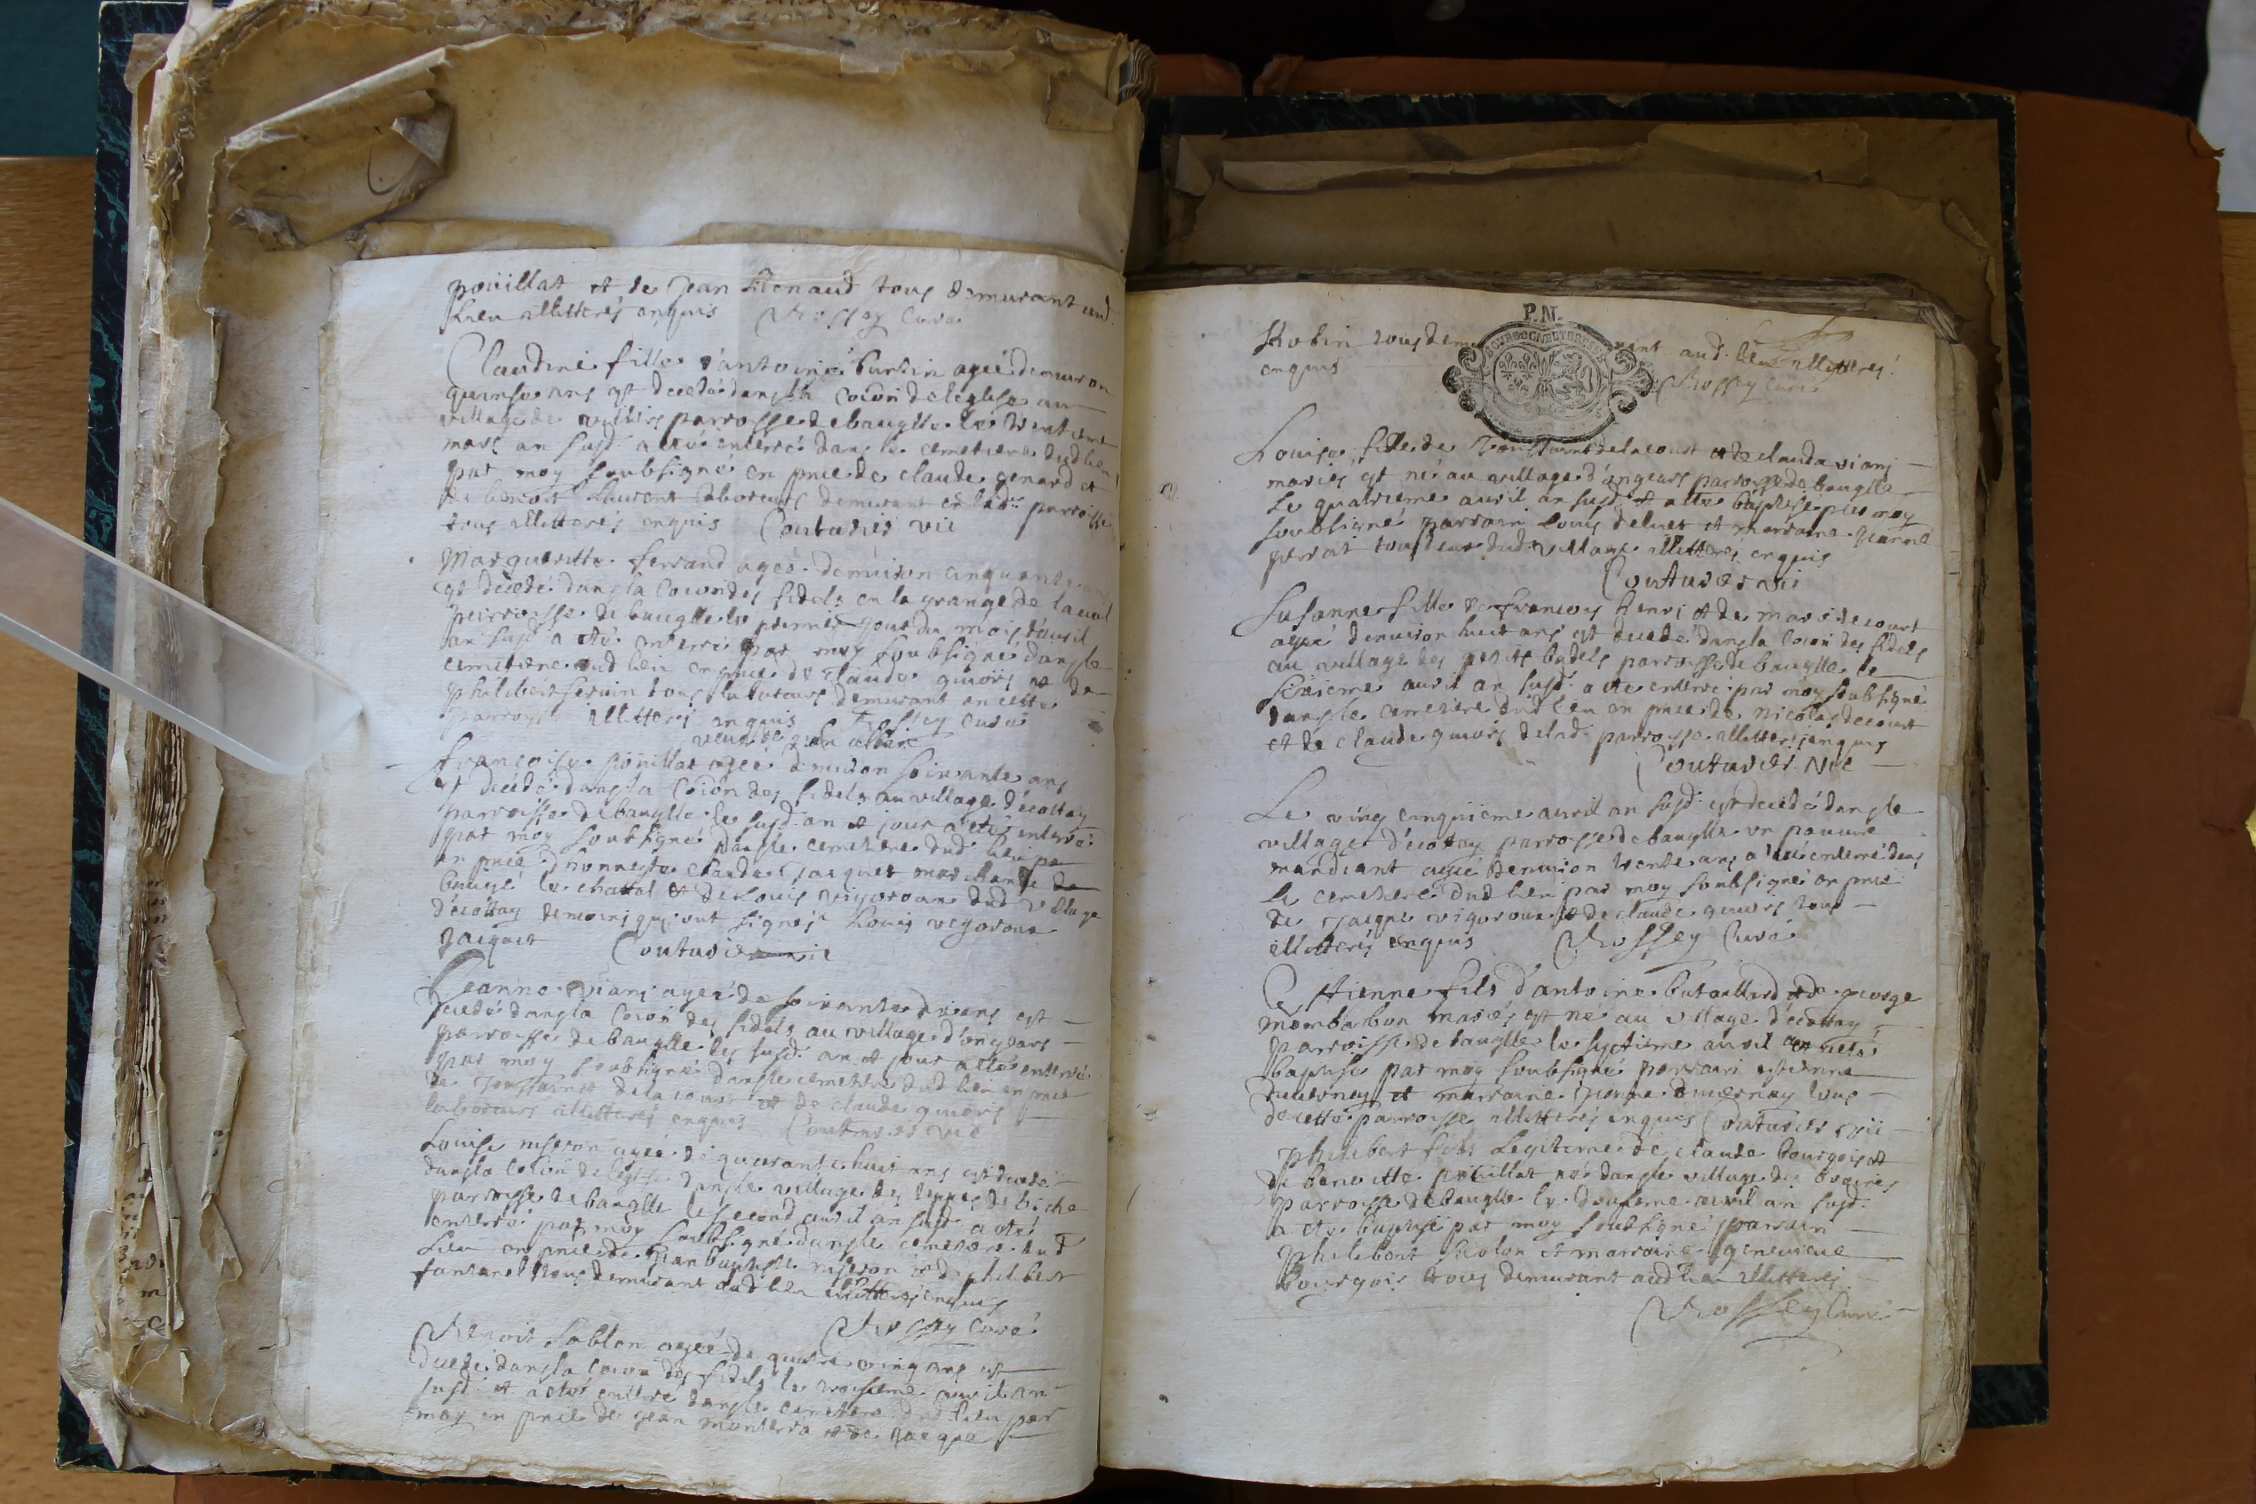 pouillat et de Jean Renaud tous demurant aud.
lieu illitteres enquis Rossey Curé
Claudine fille d'antoine burdin ageé denuiron
quinse ans est decedé dans la coion de leglise au
village de parrosse de bauglle le
mars an susd a été enterré dans le cemetiere dud lieu
par moy soubsigné en pnce de claude genard et
de benoit Laurent laboreurs demurant en lad. parrosse
tous illitterés enquis Couturier vic
Marguerite ferrand ageé denuiron cinquante ans
est decedé dans la coion des fidels en la grange de laval
parroisse de bauglle le premier jour du mois d'auril
an susd a été enterré par moy soubsigné dans le
cemetiere dud lieu en pnce de Claude guiors et de
philibert tous laboreurs demurant en cette
parrosse illitteres enquis Rossey curé
Françoise pouillat ageé denuiron soixante ans
est decedé dans la coion des fidels au village d'écottay
parroisse de bauglle le susd an et jour a été enterré
par moy soubsigné dans le cemetiere dud lieu
en pnce d'honneste claude Jacquet marchand de
baugé le chatal et de Louis vigoroux dud village
d'écottay temoins qui ont signés Louis vegoroux
Jacquet Couturier vic
Jeanne viany ageé de soixante dix ans est
decedé dans la coion des fidels au village d'angears
parrosse de bauglle les susd. an et jour a été enterré
par moy soubsigné dans le cemettere dud lieu en pnce
de Toussainct delacour et de claude guiors
laboreurs illitterés enquis Couturier vic
Louise ageé de quarante huit ans est decedé
dans la coion de leglise dans le village des de biche
parrosse de bauglle le second auril an susd. a été
enterré par moy soubsigné dans le cemetiere dud
lieu en pnce de Jean baptiste et de philibert
tous demurant aud lieu illitteres enquis
Rossey Curé
Benoit Sablon ageé de quatre ving ans est
decedé dans la coion des fidels le troisieme auril an
susd. et a été enterré dans le cemetiere dud lieu par
moy en pnce de Jean monterra et de Jacque
P.N.
Robin tous demurant aud. lieu illitteres
enquis Rossey Curé
Louise fille de Toussainct delacourt et de clauda viany
mariés est né au village d'angears parrosse de bauglle
le quatrieme auril an susd et a été baptisé par moy
soubsigné parrain Louis et marraine Jeanne
perrat tous deux dud. village illitteres enquis
Couturier vic
Susanne fille de francois henri et de marie decourt
ageé denuiron huit ans est decedé dans la coion des fidels
au village des petits parrosse de bauglle le
sixieme auril an susd. a été enterré par moy soubsigné
dans le cemetiere dud lieu en pnce de Nicolas decourt
et de claude guiors de lad. parrosse illitteres enquis
Couturier Vic
Le ving cinquieme auril an susd. est decedé dans le
village d'écottay parrosse de bauglle un pauure
mandiant agé denuiron trente ans a été enterré dans
le cemetiere dud lieu par moy soubsigné en pnce
de Jacque vigoroux et de claude guiors tous
illitterés enquis Rossey Curé
Estienne fils d'antoine butaillard et de george
mombarbon mariés est né au village d'écottay
parroisse de bauglle le septieme auril et a été
baptisé par moy soubsigné parrain estienne
duuernay et marraine Jeanne duuernay tous
de cette parrosse illitterés enques Couturier vic
philibert fils Legiteme de claude bourgois et
de benoitte pouillat né dans le village des broires
parrosse de bauglle le dousieme auril an susd.
a été baptisé par moy soubsigné parrain
philibert et marraine geneuieue
bourgois tous demurant aud lieu illitterés
Rossey Curé